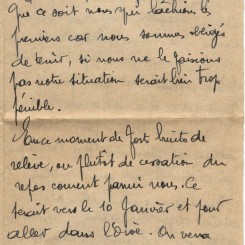 que ce soit nous qui lâchions les
premiers car nous sommes obligés
de tenir, si nous ne le faisions
pas notre situation serait bien trop
pénible.
En ce moment de forts bruits de
relève, ou plutôt de cessation du
repos courent parmi nous. Ce
serait vers le 10 Janvier et pour
aller dans l'Oise. On verra